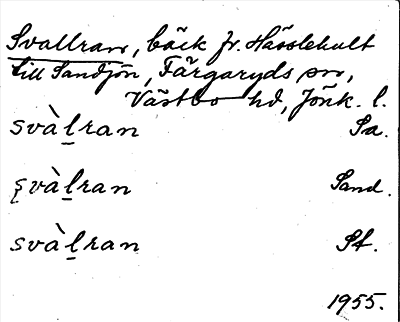 Svallran, bäck fr. Hässlehult
till Sandsjön, Färgaryds sn,
Västbo hd, Jönk. l.
svàl̲ran Sa.
ş̨vàl̲ran Sand.
svàl̲ran St.
1955.